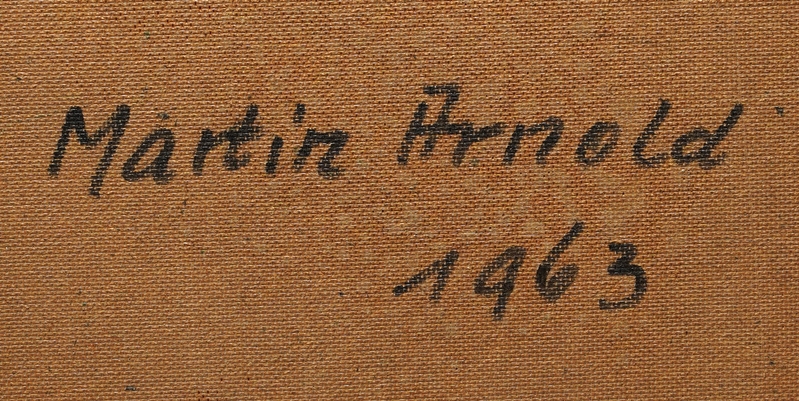 Martin Arnold
1963